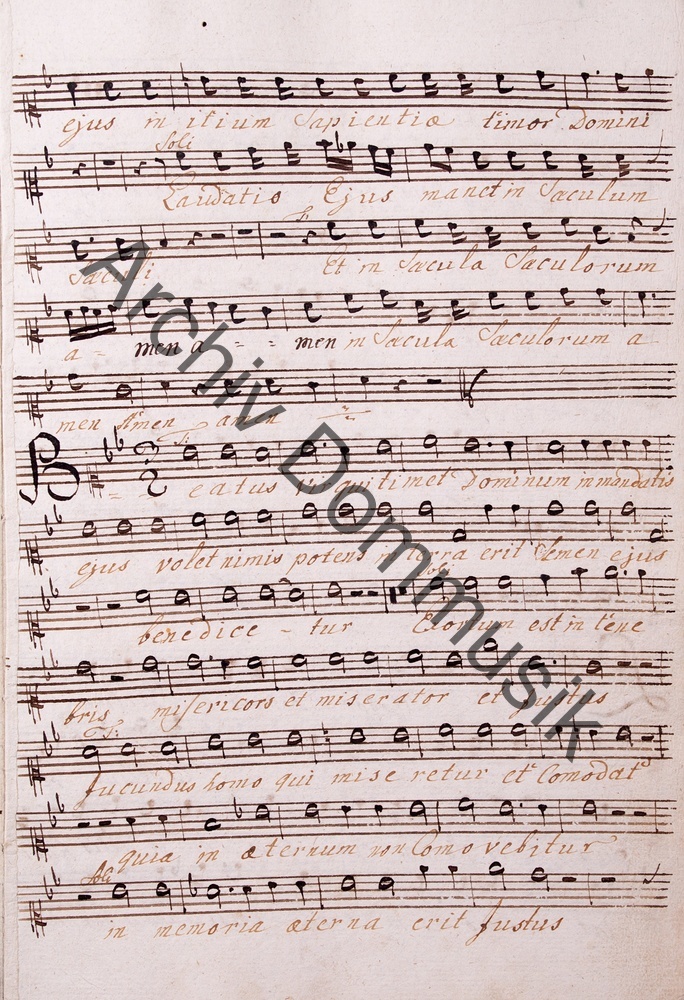 ejus in itium Sapientiæ timor Domini
Soli
Laudatio Ejus manet in Sæculum
T.
Sæculi Et in Sæcula Sæculorum
a - men a - - - men in Sæcula Sæculorum a
men Amen amen
T:
Beatus vir qui timet Dominum in mandatis
ejus volet nimis potens in terra erit Semen ejus
Soli
benedice - tur Exortum est in tene
bris misericors et miserator et Justus
T:
Jucundus homo qui mise retur et Comodat
quia in æternum non Comovebitur
Soli
in memoria æterna erit Justus
Archiv Dommusik